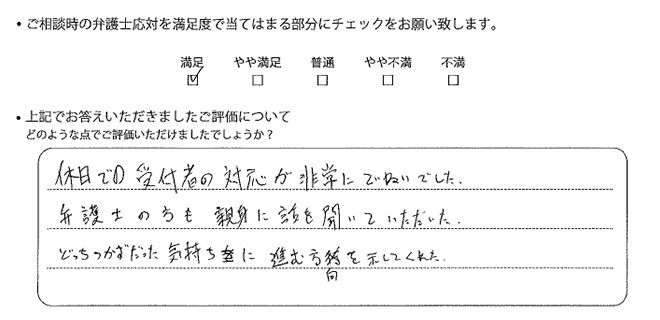 ・ご相談時の弁護士応対を満足度で当てはまる部分にチェックをお願い致します。
満足 やや満足 普通 やや不満 不満
☑ □ □ □ □
・上記でお答えいただきましたご評価について
どのような点でご評価いただけましたでしょうか？
休日での受付者の対応が非常にていねいでした。
弁護士の方も親身に話を聞いていただいた。
どっちつかずだった気持ち に進む方 を示してくれた。
向